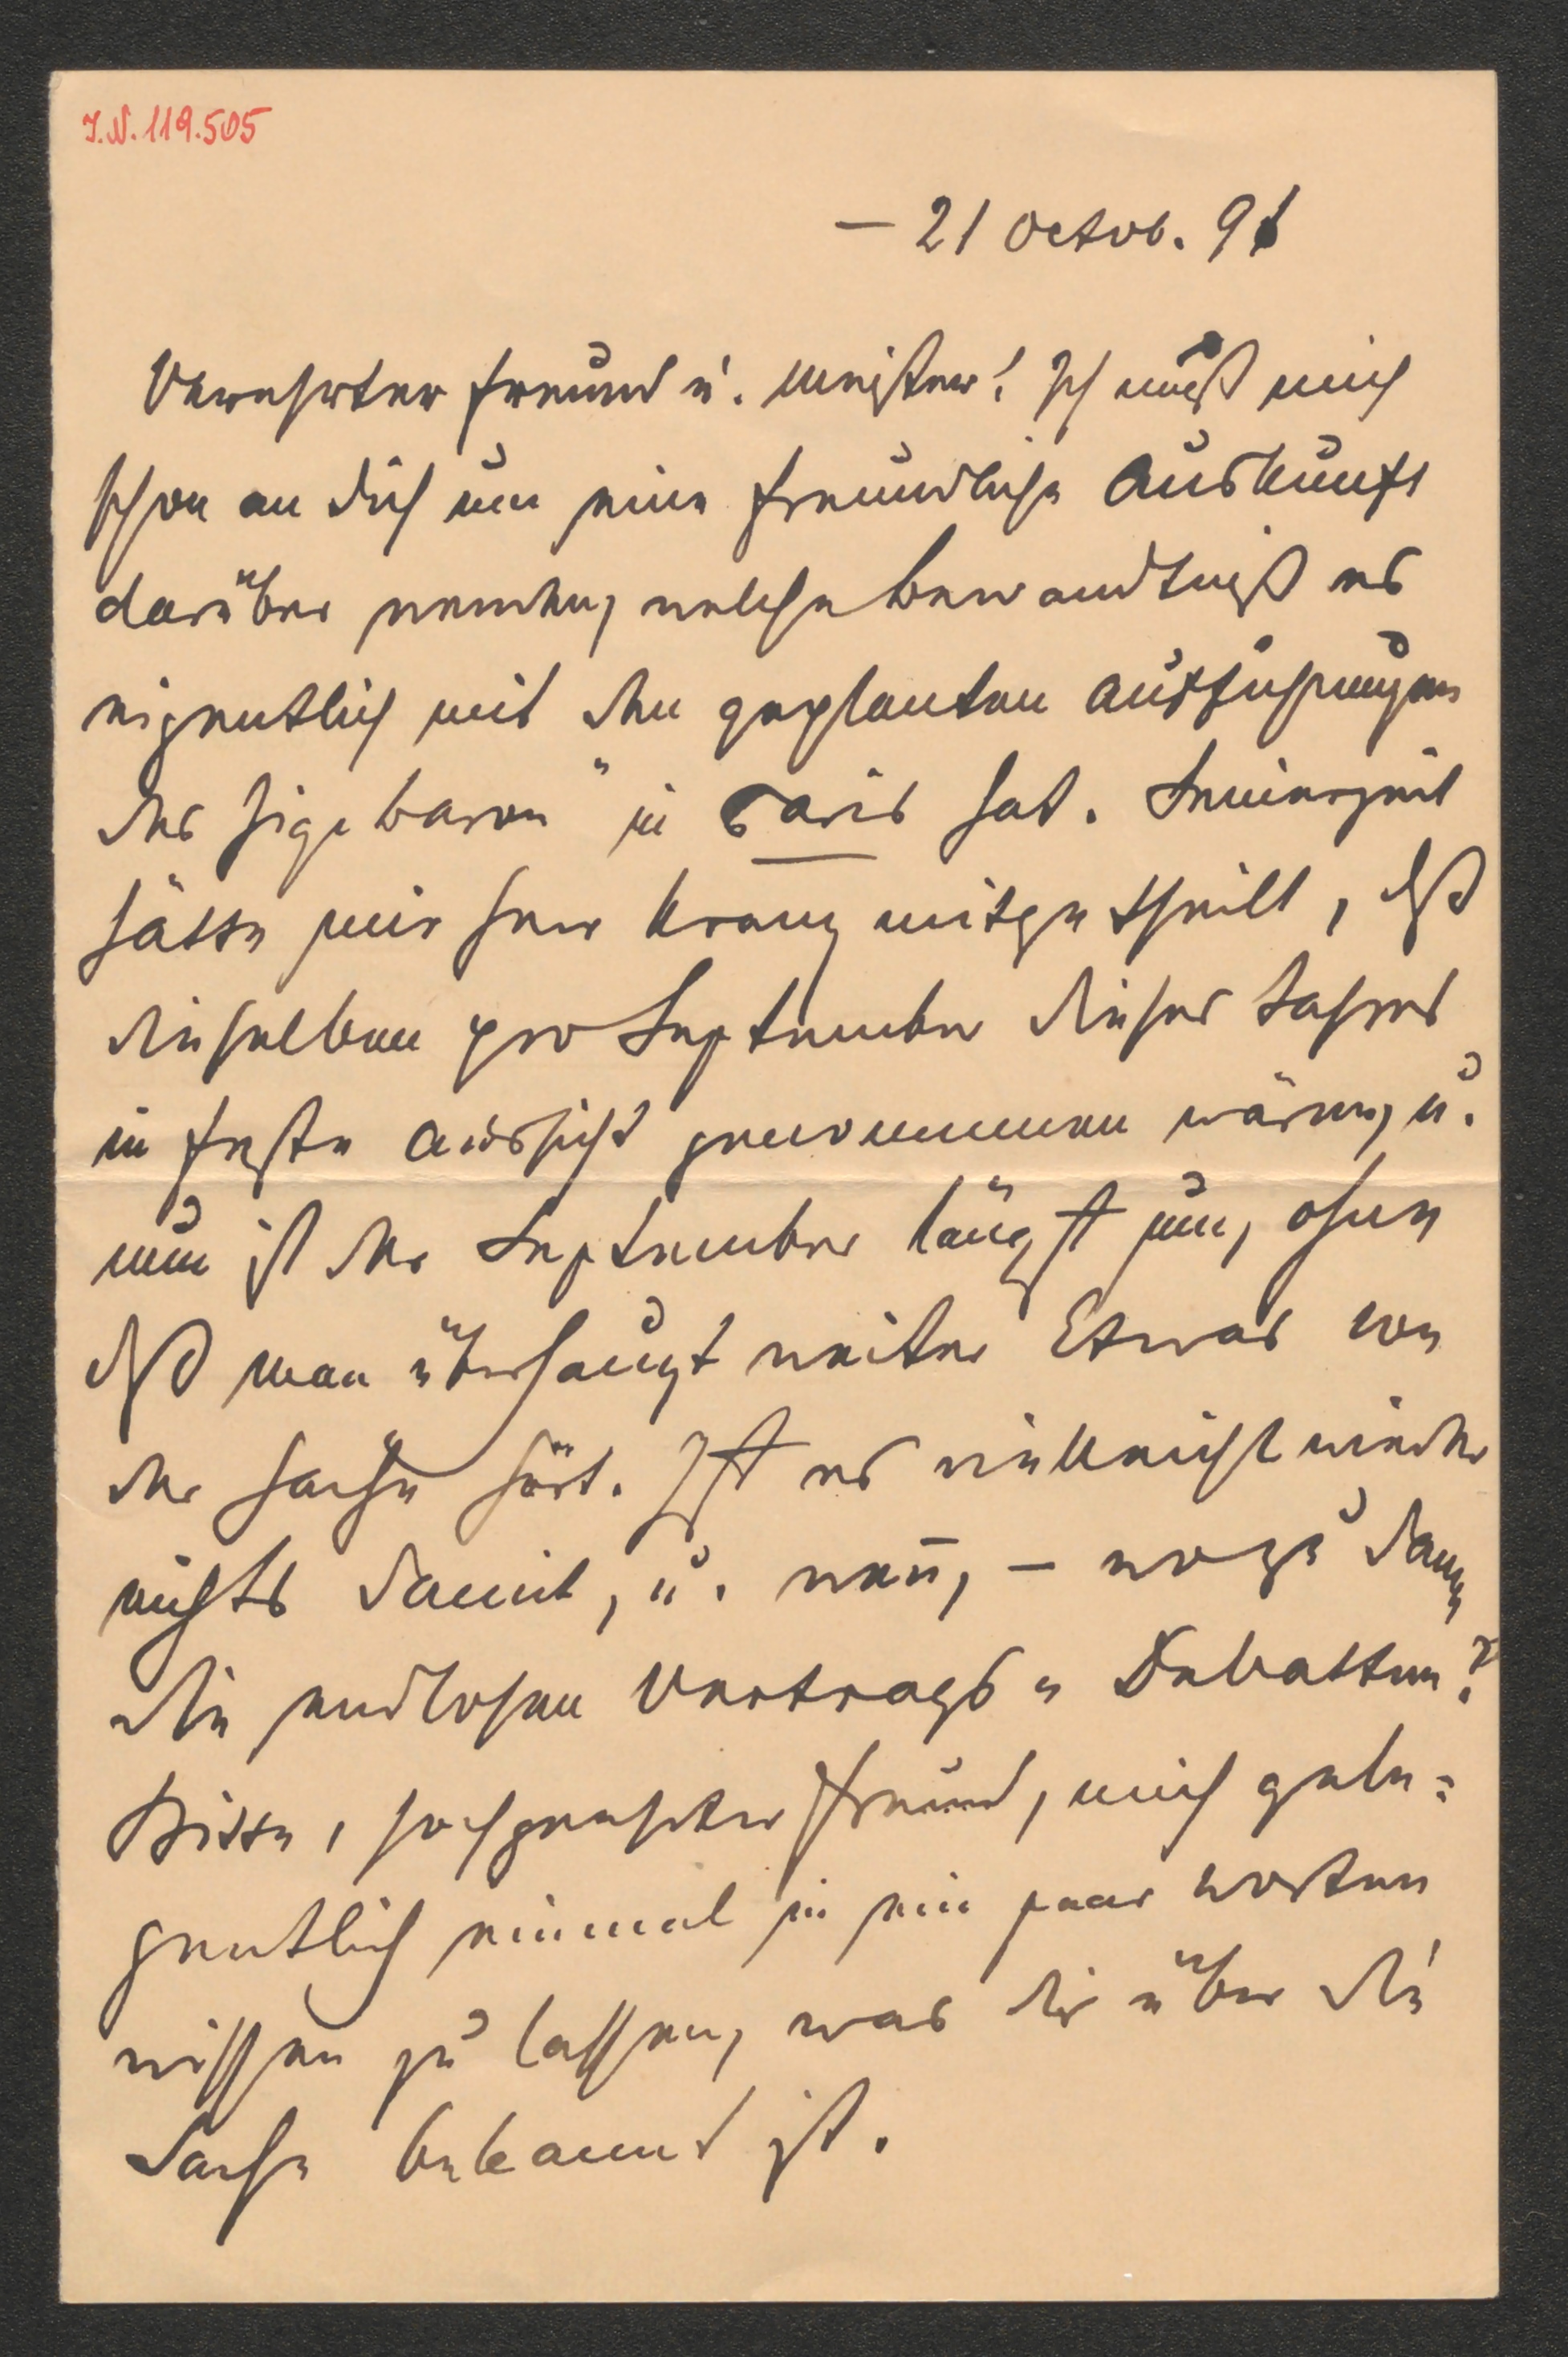 I.N. 119.505
– 21 Octob. 91
Verehrter Freund u. Meister! Ich muß mich
schon an Dich um eine freundliche Auskunft
darüber wenden, welche Bewandtniß es
eigentlich mit den geplanten Aufführungen
des Zig. baron" in Paris hat. Seinerzeit
hätte mir Herr Kranz mitgetheilt, daß
dieselben pro September dieses Jahres
in feste Aussicht genommen wären, u.
nun ist der September längst um, ohne
daß man überhaupt weiter Etwas von
der Sache hört. Ist es vielleicht wieder
nichts damit, u. wenn, – wozu dann
die endlosen Vertrags= Debatten?
Bitte, hochgeehrter Freund, mich gele=
gentlich einmal in ein paar Worten
wissen zu lassen, was Dir über die
Sache bekannt ist.